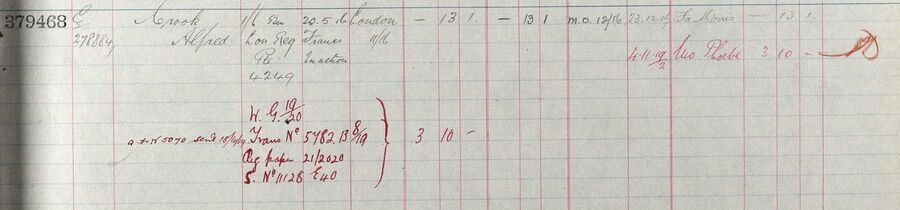 379468 E Crook 1/1 Bn 20.5.16 London - 13. 1. - 13 1 M.O. 12/16 23.12.16 Fa Morris - 13. 1.
278884 Alfred. Lon Reg France 11/16
Pte In action 4.11.19 Mo Phoebe 3 10 -
4249
W. G. 19/20
sent Trans No 5782. 13 8/19 3 10 -
Reg paper 21/2020
S. No 11128 £40